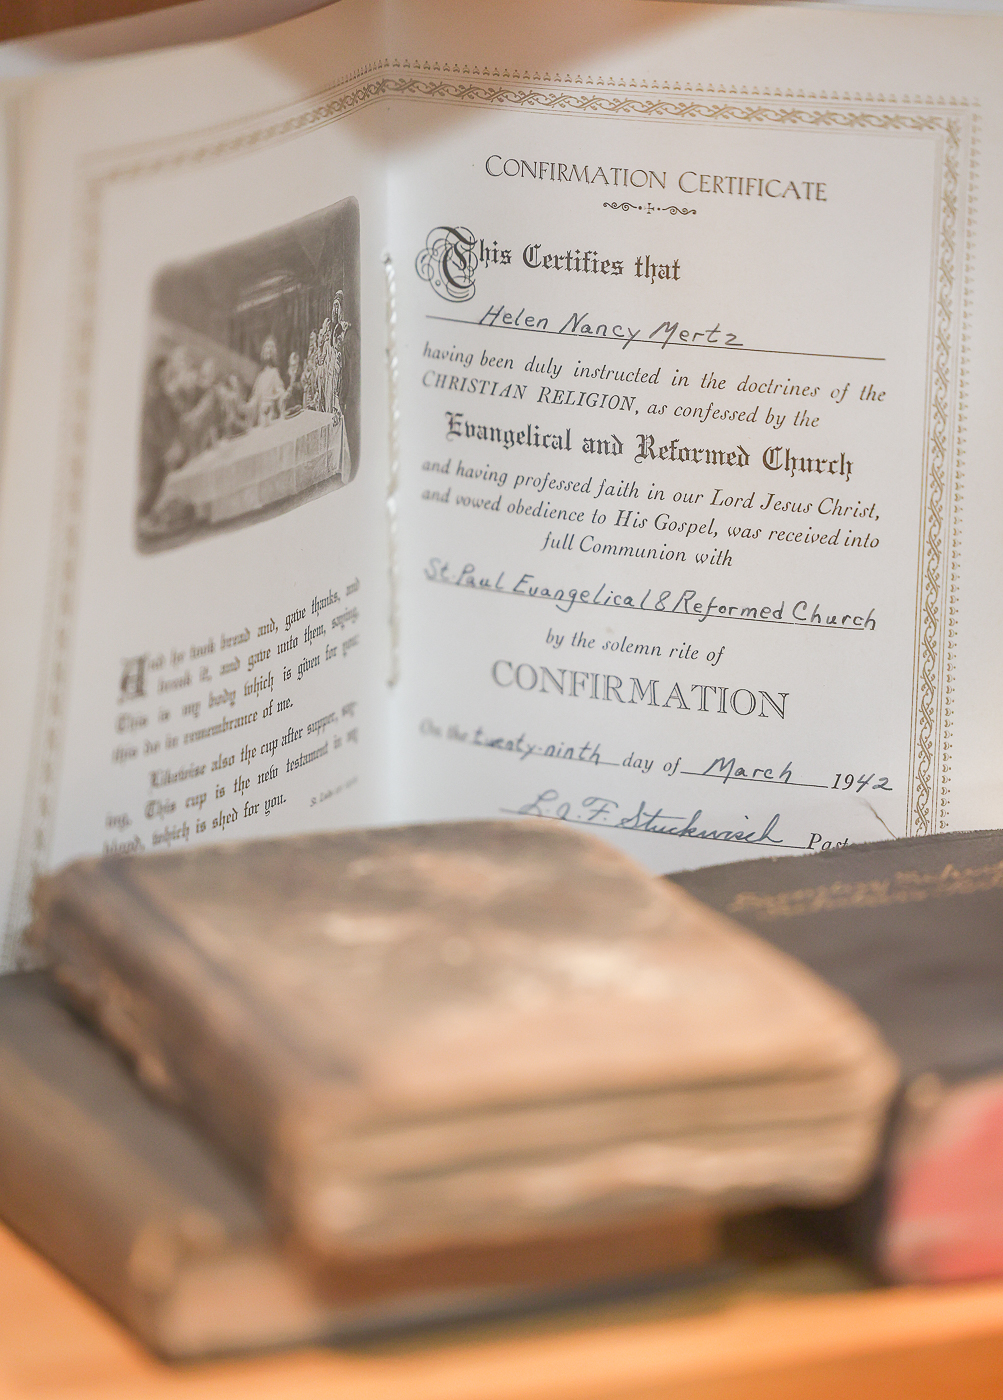 And he took bread and, gave thanks, and
break it, and gave unto them, saying,
This is my body which is given for you:
this do in remembrance of me.
Likewise also the cup after supper, say-
ing, This cup is the new testament in my
blood, which is shed for you.
St. Luke
CONFIRMATION CERTIFICATE
This Certifies that
Helen Nancy Mertz
having been duly instructed in the doctrines of the
CHRISTIAN RELIGION, as confessed by the
Evangelical and Reformed Church
and having professed faith in our Lord Jesus Christ,
and vowed obedience to His Gospel, was received into
full Communion with
St. Paul Evangelical & Reformed Church
by the solemn rite of
CONFIRMATION
On the twenty-ninth day of March 1942
Stuckwisch Past